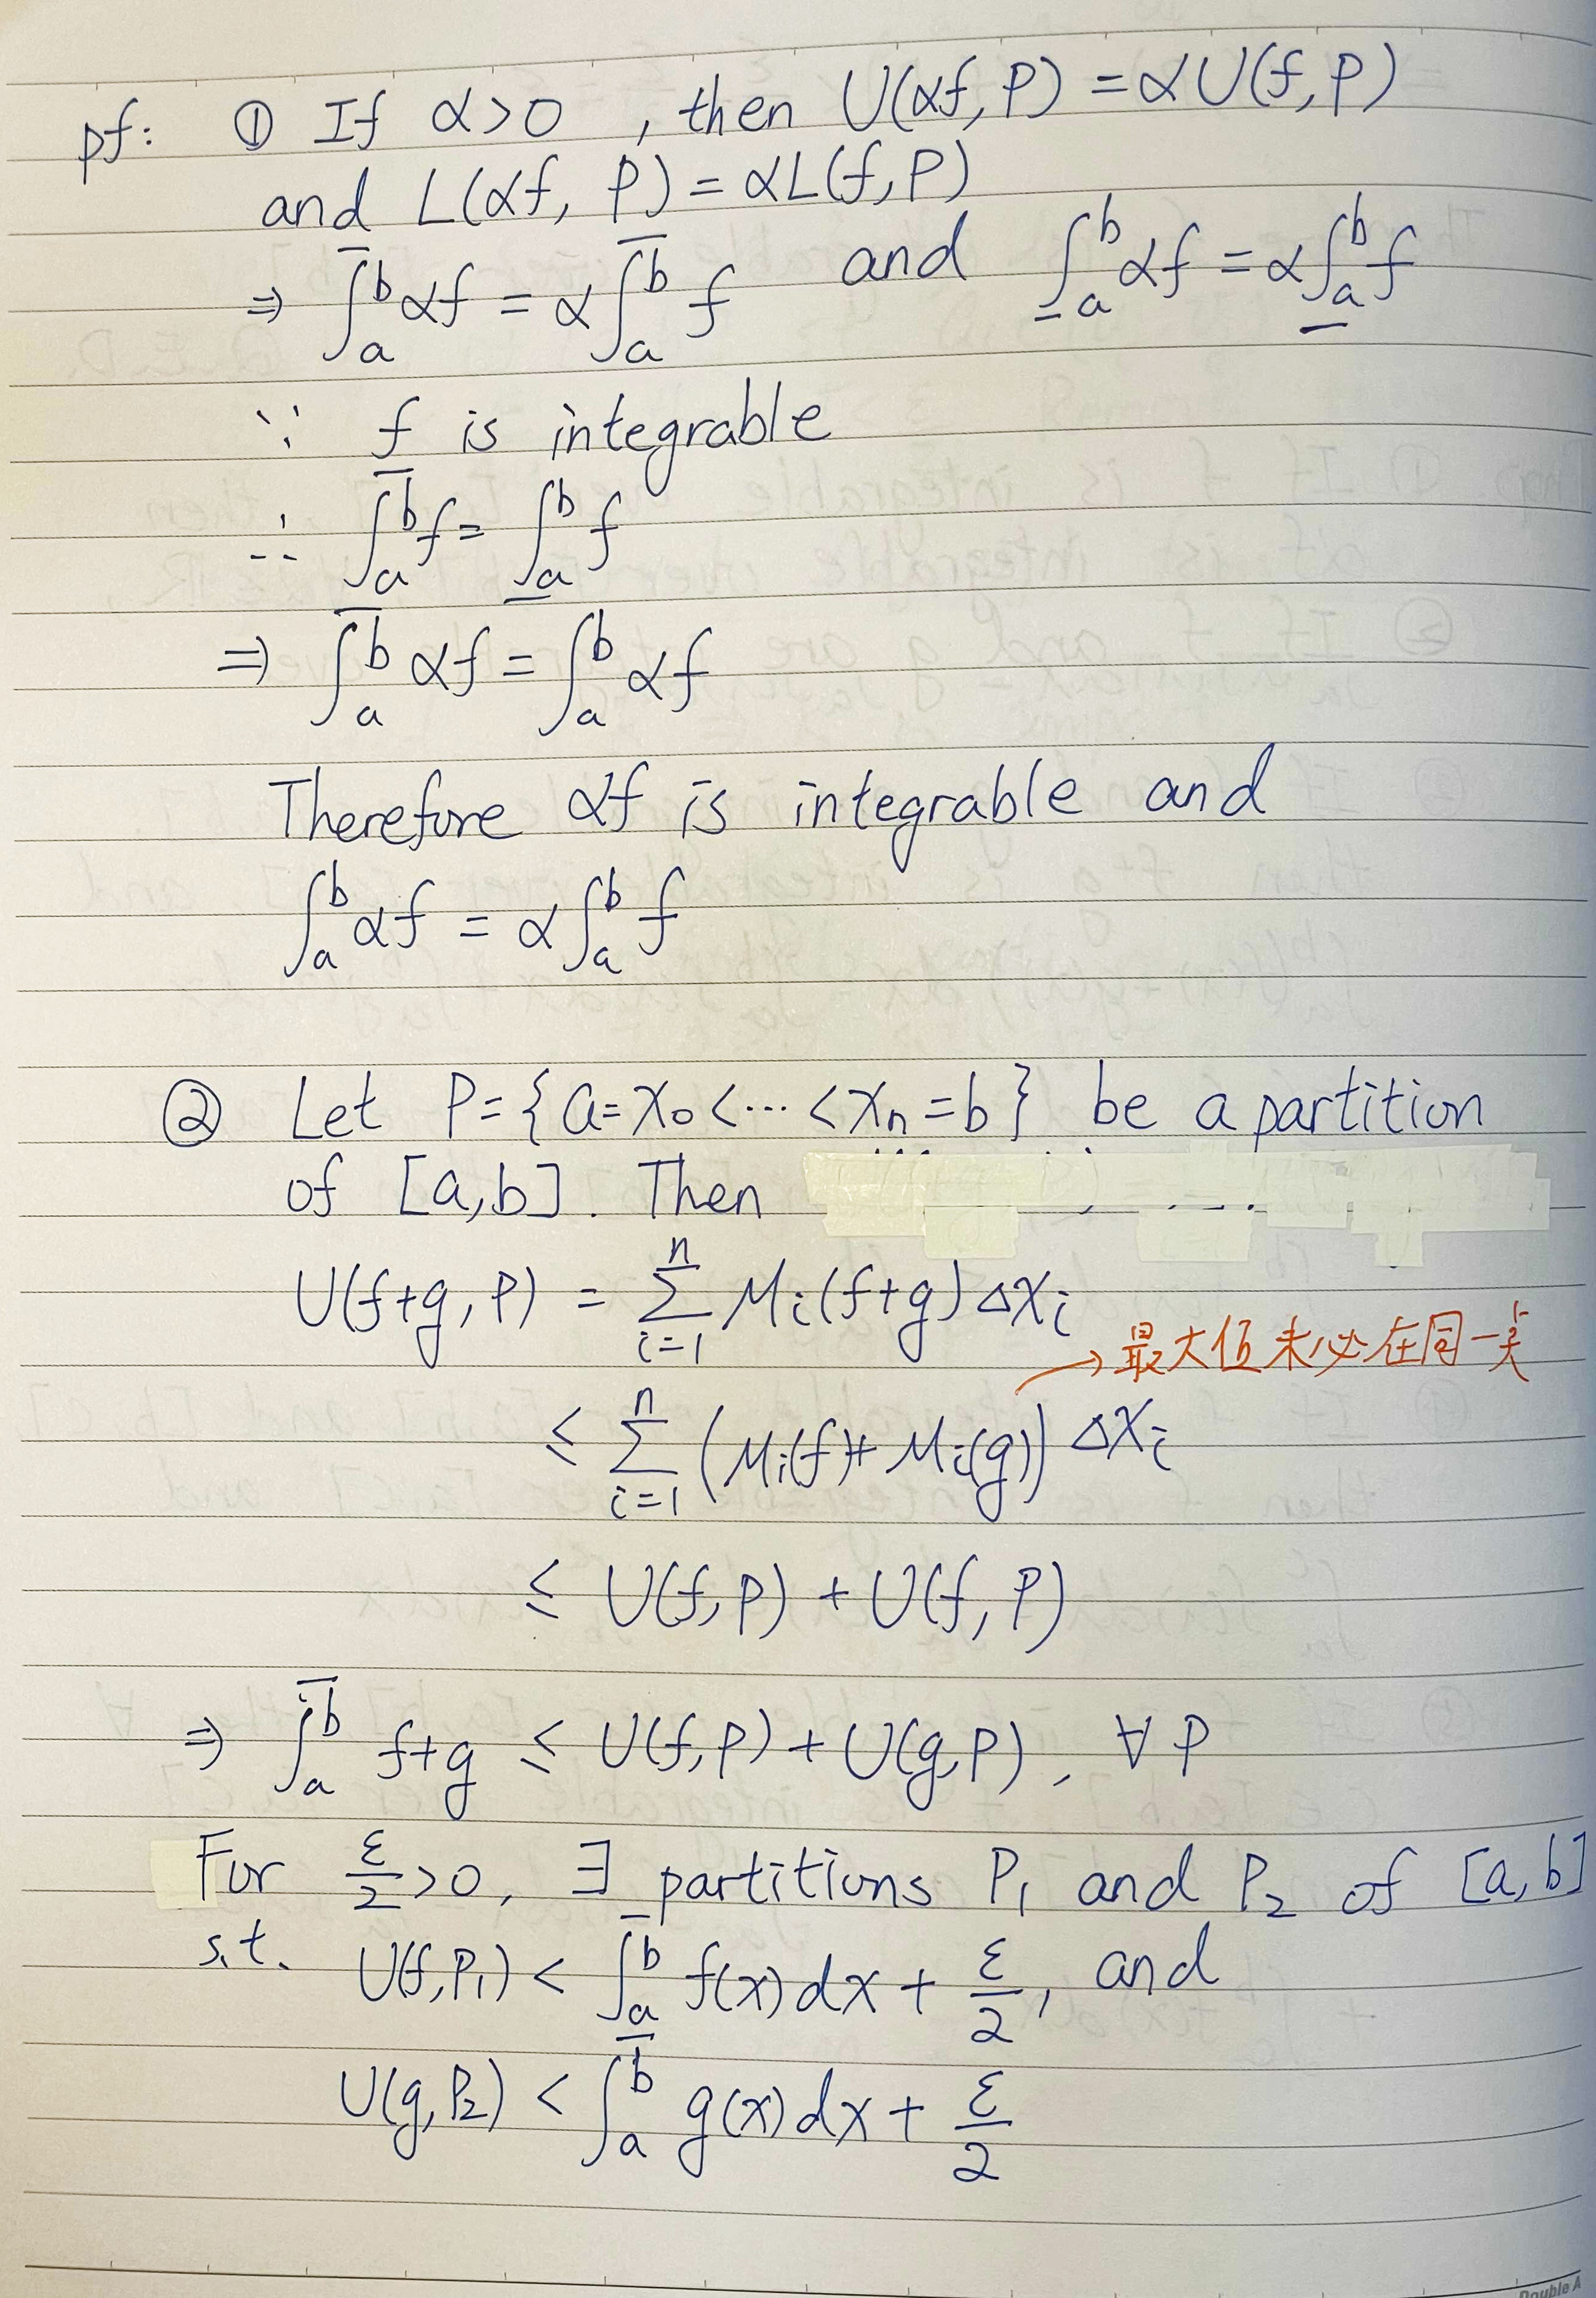 pf: ① If α>0 , then U(αf, P) = αU(f, P)
and L(αf, P) = αL(f, P)
⇒ ∫̅ₐᵇ αf = α ∫̅ₐᵇ f and ∫̲ₐᵇ αf = α ∫̲ₐᵇ f
∵ f is integrable
∴ ∫̅ₐᵇ f = ∫̲ₐᵇ f
⇒ ∫̅ₐᵇ αf = ∫ₐᵇ αf
Therefore αf is integrable and
∫ₐᵇ αf = α ∫ₐᵇ f
② Let P = {a = x₀ < ··· < xₙ = b} be a partition
of [a, b]. Then
U(f+g, P) = Σᵢ₌₁ⁿ Mᵢ(f+g) Δxᵢ
→ 最大值未必在同一点
≤ Σᵢ₌₁ⁿ (Mᵢ(f) + Mᵢ(g)) Δxᵢ
≤ U(f, P) + U(f, P)
⇒ ∫̅ₐᵇ f+g ≤ U(f, P) + U(g, P), ∀ P
For ε/2 > 0, ∃ partitions P₁ and P₂ of [a, b]
s.t. U(f, P₁) < ∫̅ₐᵇ f(x) dx + ε/2, and
U(g, P₂) < ∫̅ₐᵇ g(x) dx + ε/2
Double A